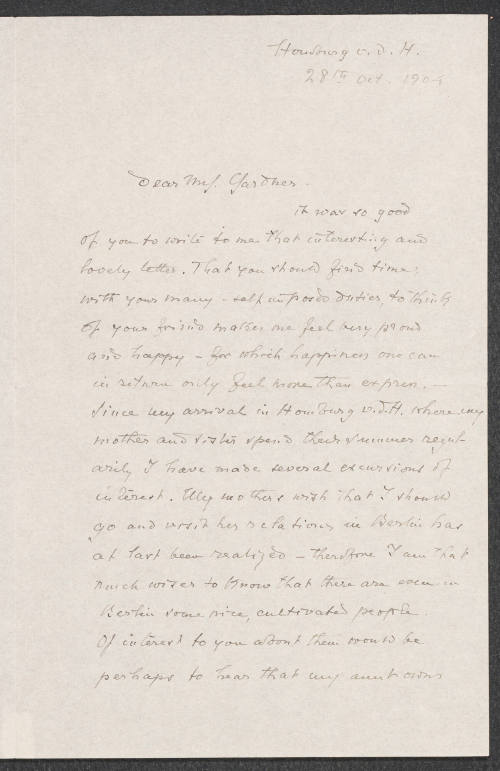 Homburg v.d.H.
28th Oct. 1904
Dear Mrs. Gardner.
it was so good
of you to write to me that interesting and
lovely letter. That you should find time,
with your many - self imposed duties, to think
of your friend makes me feel very proud
and happy - for which happiness one can
in return only feel more than express. —
Since my arrival in Homburg v.d.H. where my
mother and sister spend their summer regul-
arily I have made several excursions of
interest. My mothers wish that I should
go and visit her relations in Berlin has
at last been realized - therefore I am that
much wiser to know that there are even in
Berlin some nice, cultivated people.
Of interest to you about them would be
perhaps to hear that my aunt owns